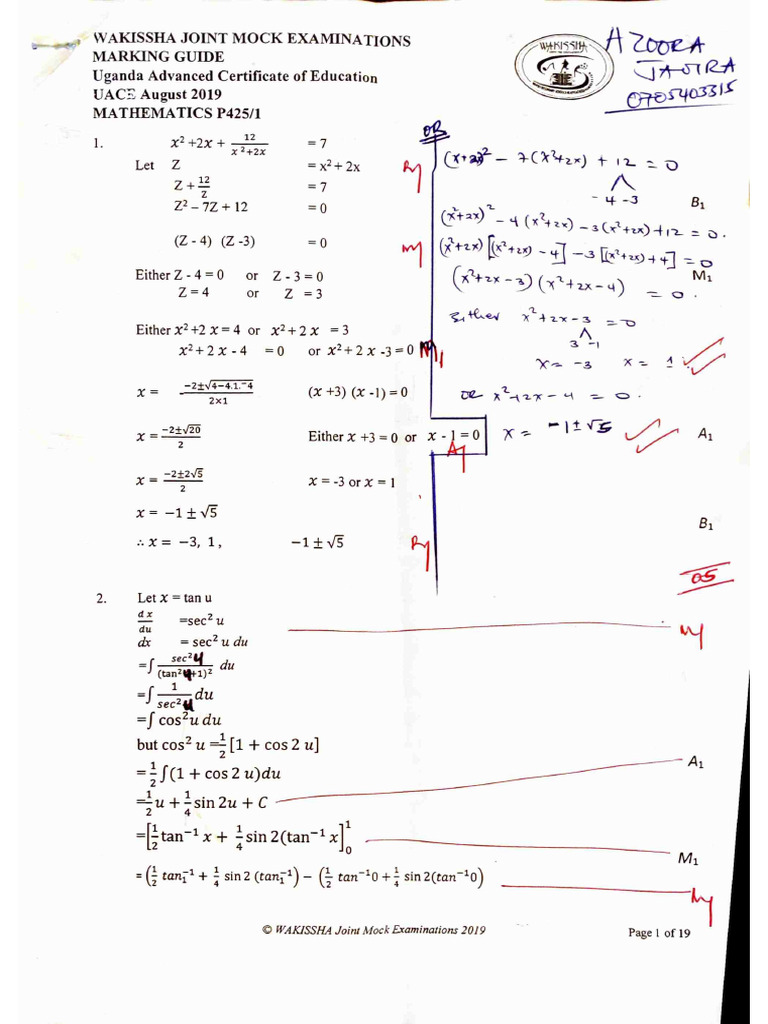 WAKISSHA JOINT MOCK EXAMINATIONS
MARKING GUIDE
Uganda Advanced Certificate of Education
UACE August 2019
MATHEMATICS P425/1
WAKISSHA
AZOORA
JAVIRA
0705403315
1. x² +2x + 12/(x²+2x) = 7
Let Z = x² + 2x
Z + 12/Z = 7
Z² – 7Z + 12 = 0
(Z - 4) (Z -3) = 0
Either Z - 4 = 0 or Z - 3 = 0
Z = 4 or Z = 3
Either x² +2 x = 4 or x² + 2 x = 3
x² + 2 x - 4 = 0 or x² + 2 x -3 = 0
x = (−2±√(4−4.1.⁻4))/(2×1) (x +3) (x -1) = 0
x = (−2±√20)/2 Either x +3 = 0 or x - 1 = 0
x = (−2±2√5)/2 x = -3 or x = 1
x = −1 ± √5
∴ x = −3, 1 , −1 ± √5
OR
(x²+2x)² − 7(x²+2x) + 12 = 0
-4 -3
B₁
(x²+2x)² − 4(x²+2x) − 3(x²+2x) + 12 = 0.
(x²+2x)[(x²+2x) − 4] − 3[(x²+2x) + 4] = 0
M₁
(x²+2x−3)(x²+2x−4) = 0.
Either x²+2x−3 = 0
3 -1
x = −3 x = 1
OR x²+2x−4 = 0.
x = −1±√5
A₁
B₁
05
2. Let x = tan u
dx/du =sec² u
dx = sec² u du
=∫ sec²u/(tan²u+1)² du
=∫ 1/sec²u du
=∫ cos²u du
but cos² u =½[1 + cos 2 u]
= ½∫(1 + cos 2 u)du
A₁
=½u + ¼ sin 2u + C
=[½ tan⁻¹ x + ¼ sin 2(tan⁻¹ x]₀¹
M₁
= (½ tan₁⁻¹ + ¼ sin 2 (tan₁⁻¹) − (½ tan⁻¹0 + ¼ sin 2(tan⁻¹0)
© WAKISSHA Joint Mock Examinations 2019
Page 1 of 19